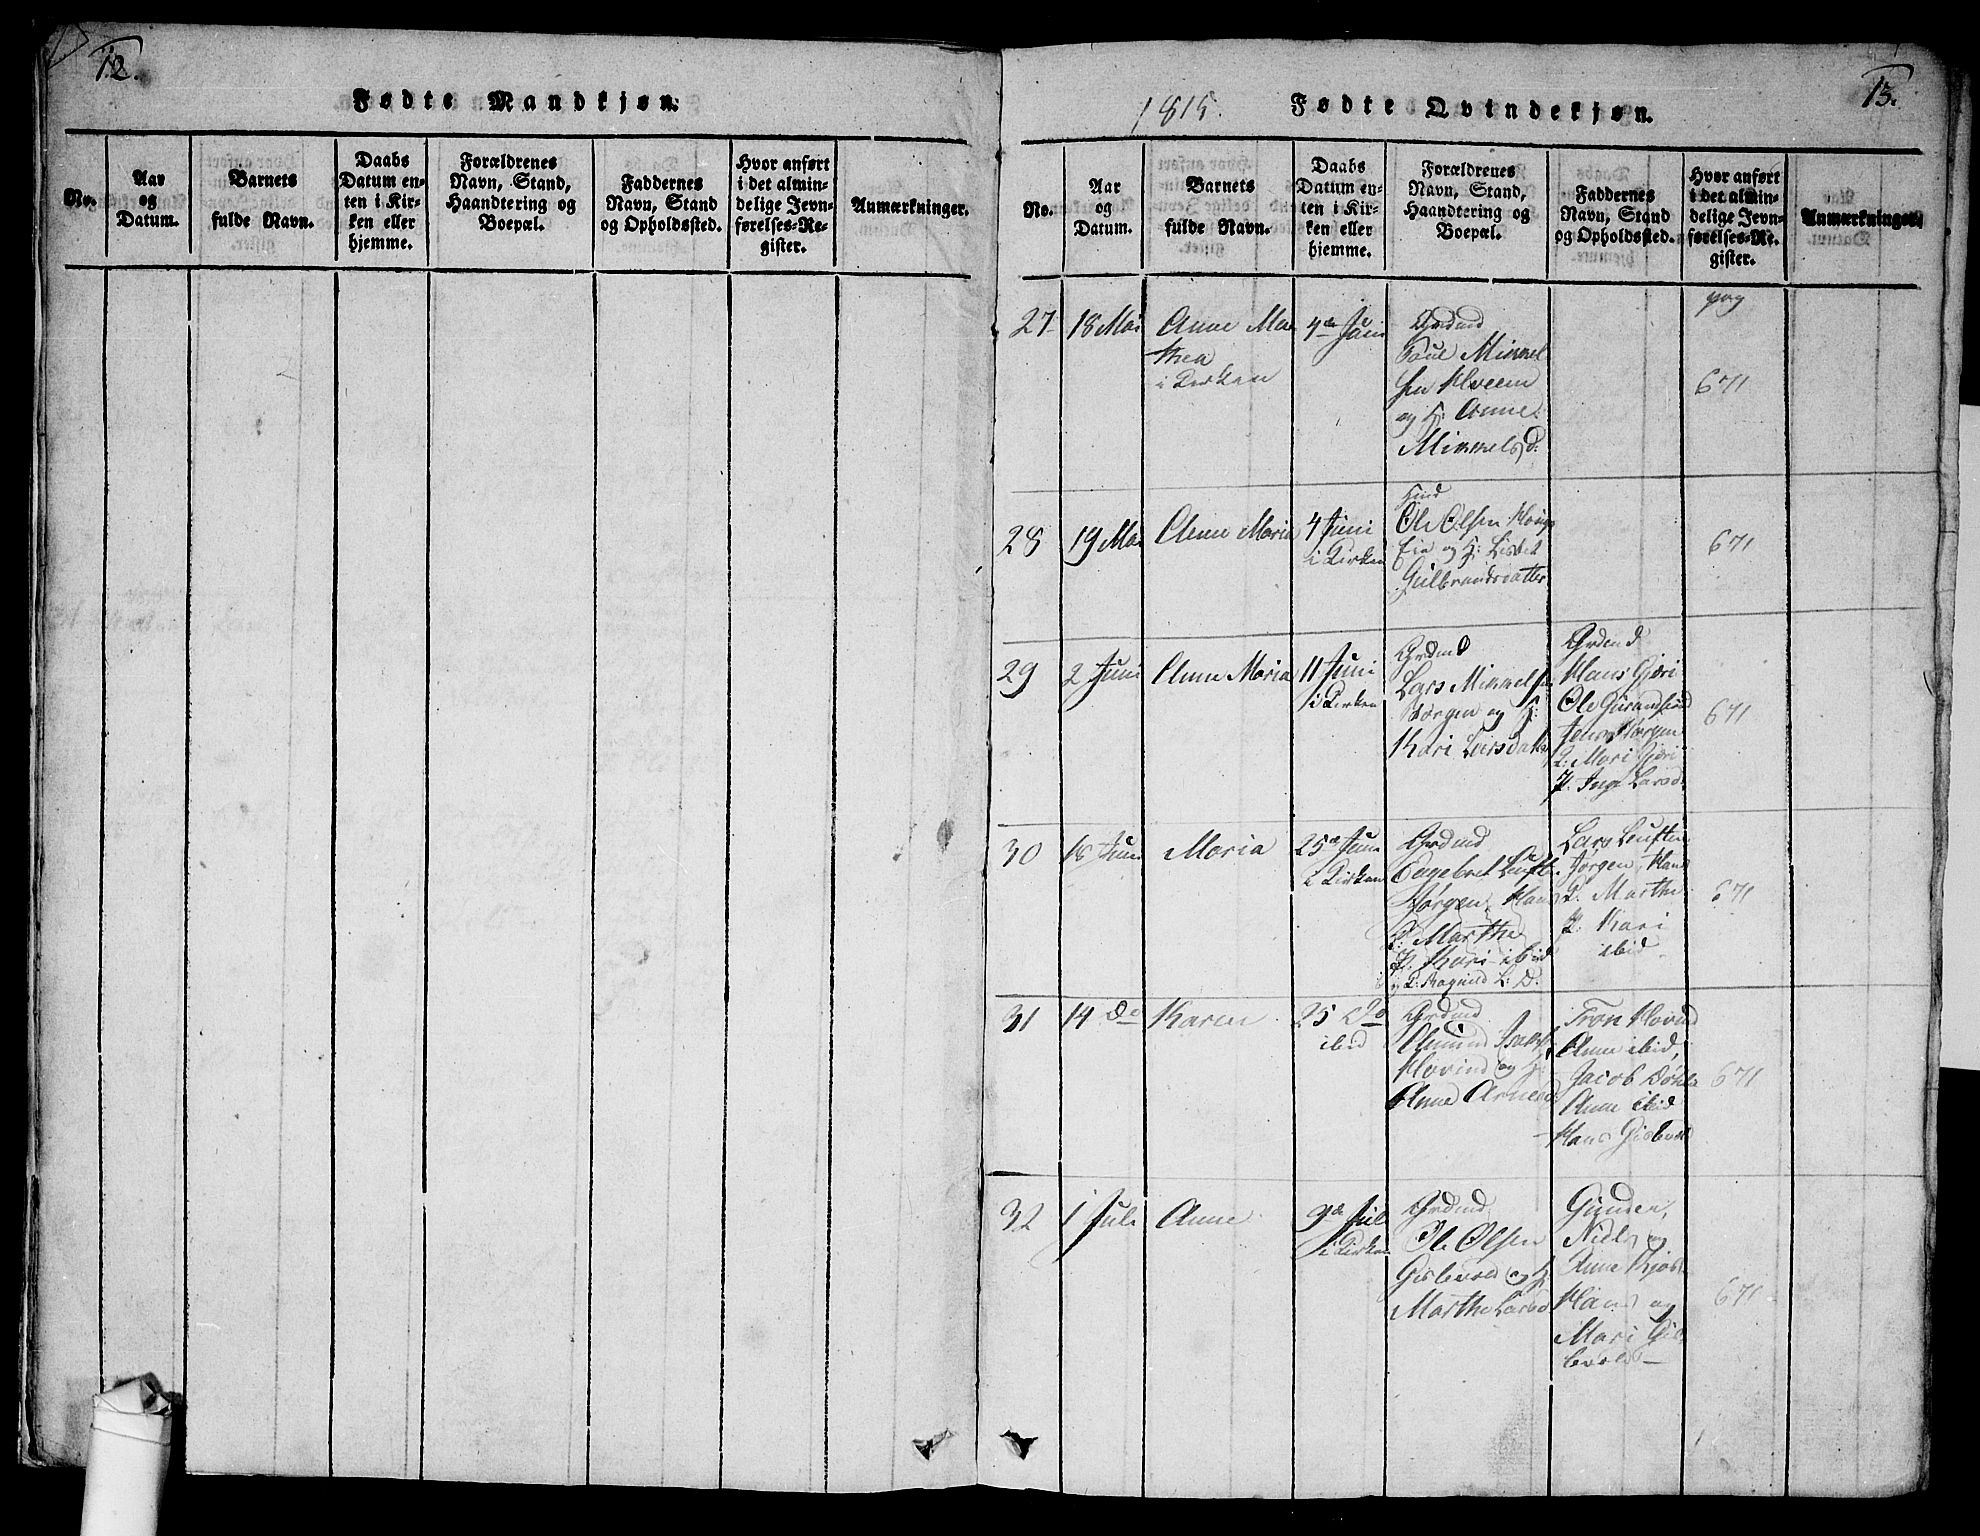 12.
Fødte Mandkjøn.
No.
Aar og Datum.
Barnets fulde Navn.
Daabs Datum enten i Kirken eller hjemme.
Forældrenes Navn, Stand, Haandtering og Boepæl.
Faddernes Navn, Stand og Opholdssted.
Hvor anført i det almindelige Jevnførelses-Register.
Anmærkninger.
13.
1815.
Fødte Qvindekjøn.
No.
Aar og Datum.
Barnets fulde Navn.
Daabs Datum enten i Kirken eller hjemme.
Forældrenes Navn, Stand, Haandtering og Boepæl.
Faddernes Navn, Stand og Opholdssted.
Hvor anført i det almindelige Jevnførelses-Register.
Anmærkninger.
pag
27
18 Mai
Anne Ma
thea
i Kirken
4de Juni
Grdmd
Poul Mikkel
sen Hveem
og H: Anne
Mikkelsd:
671
28
19 Mai
Anne Maria
4 Juni
i Kirken
Ole Olsen
Eie og H: Lisbet
Gulbrandsdatter
671
29
2 Juni
Anne Maria
11 Juni
i Kirken
Grdmd
Lars Mikkelsen
og H:
Kari Larsdatter
Grdmd
Hans Gjøri
Ole
Jens
Q: Mari Gjøri
P. Inge Larsd:
671
30
Juni
Maria
25de Juni
i Kirken
Grdmd
Engebret
Jørgen, Hans
Q: Marthe
P. Kari ibid
Q: Ragnild L: D.
Lars
Jørgen, Hans
Q. Marthe
P. Kari
ibid
671
31
14 do
Karen
25 do
ibid
Grdmd
Amund
Hovind og H:
Anne Arnesd
Tron Hovind
Anne ibid,
Jacob
Anne ibid
Hans Gislevold
671
32
1 Juli
Anne
9de Juli
i Kirken
Grdmd
Ole Olsen
Gislevold og H
Marthe Larsd
Niels og
Anne
Hans og
Mari Gis
levold
671